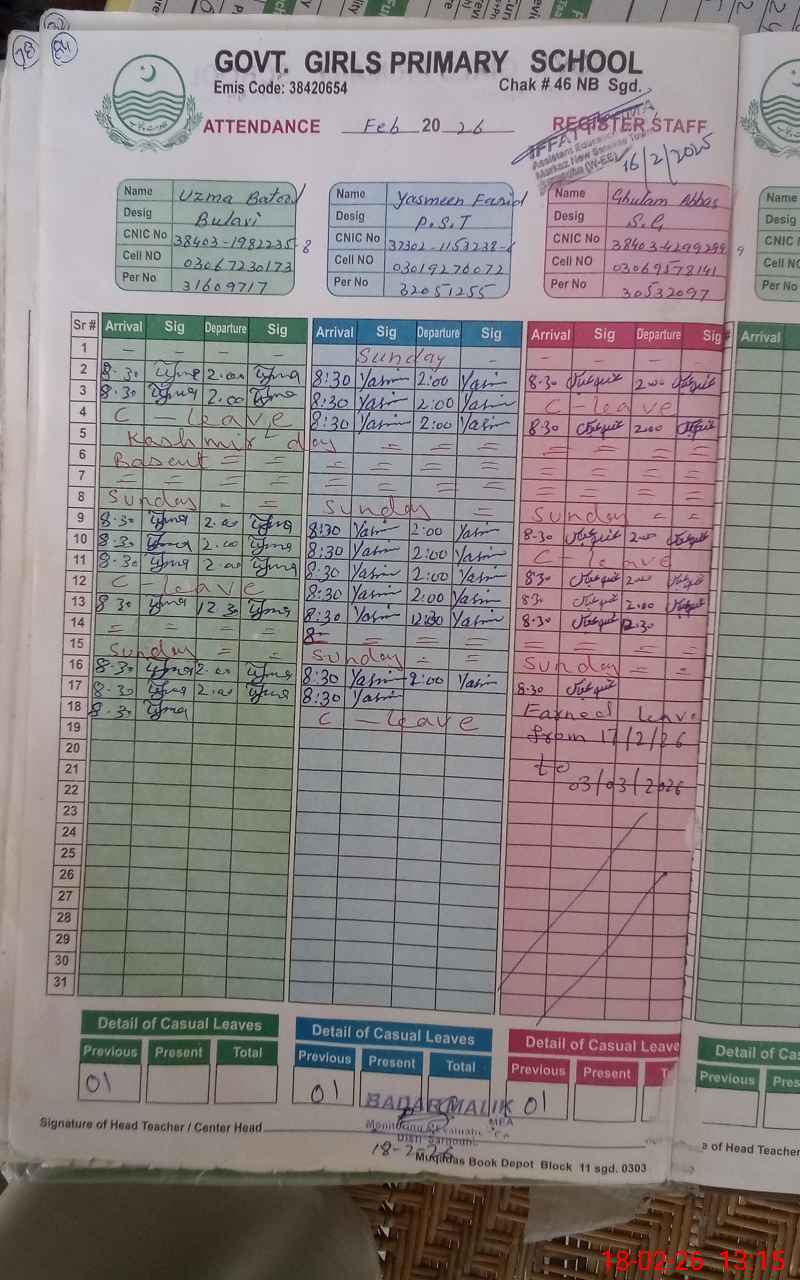 78 84
GOVT. GIRLS PRIMARY SCHOOL
Emis Code: 38420654 Chak # 46 NB Sgd.
ATTENDANCE Feb 20 26 REGISTER STAFF
Assistant Education
16/2/2025
Name Uzma Batool
Desig
CNIC No 38403-1982235-8
Cell NO 03067230173
Per No 31609717
Name Yasmeen Farid
Desig P.S.T
CNIC No 37302-1153238-6
Cell NO 03019276072
Per No 32051255
Name Ghulam Abbas
Desig
CNIC No 38403-4299294 9
Cell NO 03069578141
Per No 30532097
Name
Desig
CNIC
Cell NO
Per No
Sr # Arrival Sig Departure Sig Arrival Sig Departure Sig Arrival Sig Departure Sig Arrival
1 – – – – Sunday – – – – –
2 8.30 2.00 8:30 Yasmin 2:00 Yasmin 8.30 2.00
3 8.30 2.00 8:30 Yasmin 2:00 Yasmin C-leave
4 C leave 8:30 Yasmin 2:00 Yasmin 8.30 2.00
5 Kashmir day = = = = = =
6 Basent = = = = = = = = = =
7 = = = = = = = = = = = =
8 Sunday - = Sunday = = Sunday = =
9 8.30 2.00 8:30 Yasmin 2:00 Yasmin 8.30 2.00
10 8.30 2.00 8:30 Yasmin 2:00 Yasmin C-leave
11 8.30 2.00 8:30 Yasmin 2:00 Yasmin 8.30 2.00
12 C-leave 8:30 Yasmin 2:00 Yasmin 8.30 2.00
13 8.30 12.30 8:30 Yasmin 12:30 Yasmin 8.30 12.30
14 = = = = 8- = = = = = = =
15 Sunday = = Sunday = = Sunday = =
16 8.30 2.00 8:30 Yasmin 2:00 Yasmin 8.30
17 8.30 2.00 8:30 Yasmin Earned leave
18 8.30 C-leave from 17/2/26
19
20 to
21 03/03/2026
22
23
24
25
26
27
28
29
30
31
Detail of Casual Leaves Detail of Casual Leaves Detail of Casual Leave Detail of Cas
Previous Present Total Previous Present Total Previous Present Previous
01 01 01
BADAR MALIK
MEA
18-2-26
Signature of Head Teacher / Center Head
Muqddas Book Depot Block 11 sgd. 0303
of Head Teacher
18-02-26 13:15